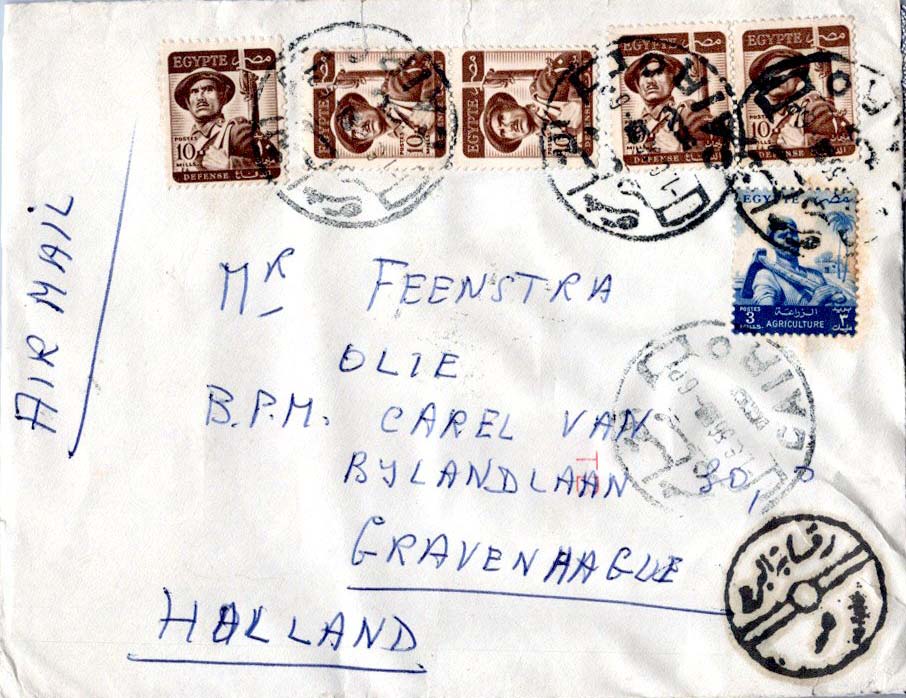 EGYPTE مصر
POSTES
10
MILLS
DEFENSE الدفاع
EGYPTE مصر
10
EGYPTE مصر
EGYPTE مصر
POSTES
10
MILLS
DEFENSE
EGYPTE مصر
POSTES
10
MILLS
DEFENSE
EGYPTE مصر
POSTES الزراعة
3
MILLS. AGRICULTURE ٣
CAIRO
CAIRO
AIR MAIL
MR FEENSTRA
OLIE
B.P.M. CAREL VAN
BYLANDLAAN
GRAVENHAGUE
HOLLAND
CAIRO
رقابة البريد